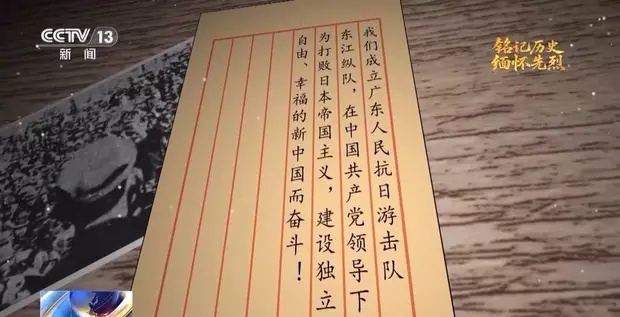 CCTV 13
新闻
铭记历史
缅怀先烈
我们成立广东人民抗日游击队
东江纵队，在中国共产党领导下
为打败日本帝国主义，建设独立
自由、幸福的新中国而奋斗！